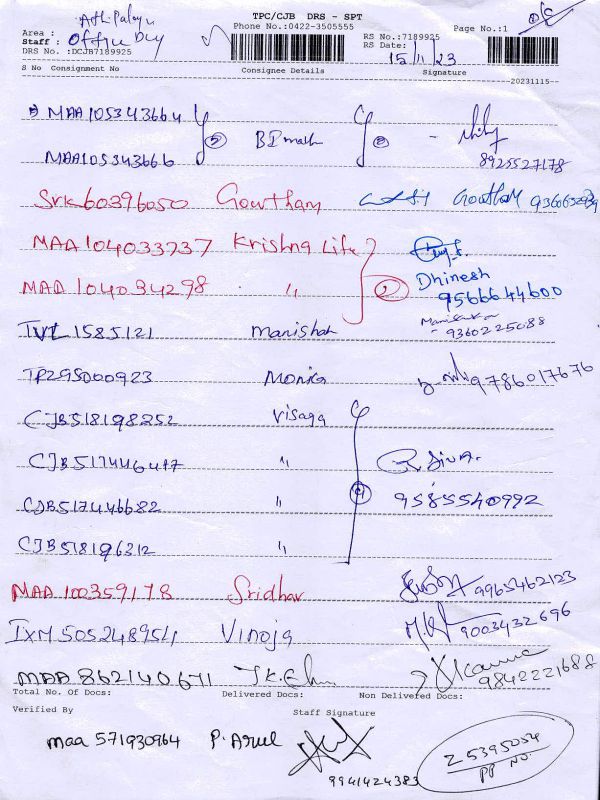 TPC/CJB DRS - SPT
Phone No.:0422-3505555
Page No.:1
Area :
Staff : Office Duy
DRS No. :DCJB7189925
RS No.:7189925
RS Date: 15/11/23
S No Consignment No Consignee Details Signature
--20231115--
MAA105343664
MAA105343666
8925527178
SRK60396050 Gowtham Gowtham
MAA 104033737 Krishna Life
MAA 104034298 "
Dhinesh
9566644600
TVL 1585121 manishah
9360225088
TP295000923 Monica 9786017676
CJB518198252 Visaga
CJB517446477 "
CJB517446682 "
Siva.
9585540992
CJB518196212 "
MAA 100359178 Sridhar 9965462123
IXM 505248954 Vinoja 9003432696
MAA 862140671
9842221688
Total No. Of Docs: Delivered Docs: Non Delivered Docs:
Verified By Staff Signature
maa 571930964 P. Arul
9941424383
25395054
PP NO.